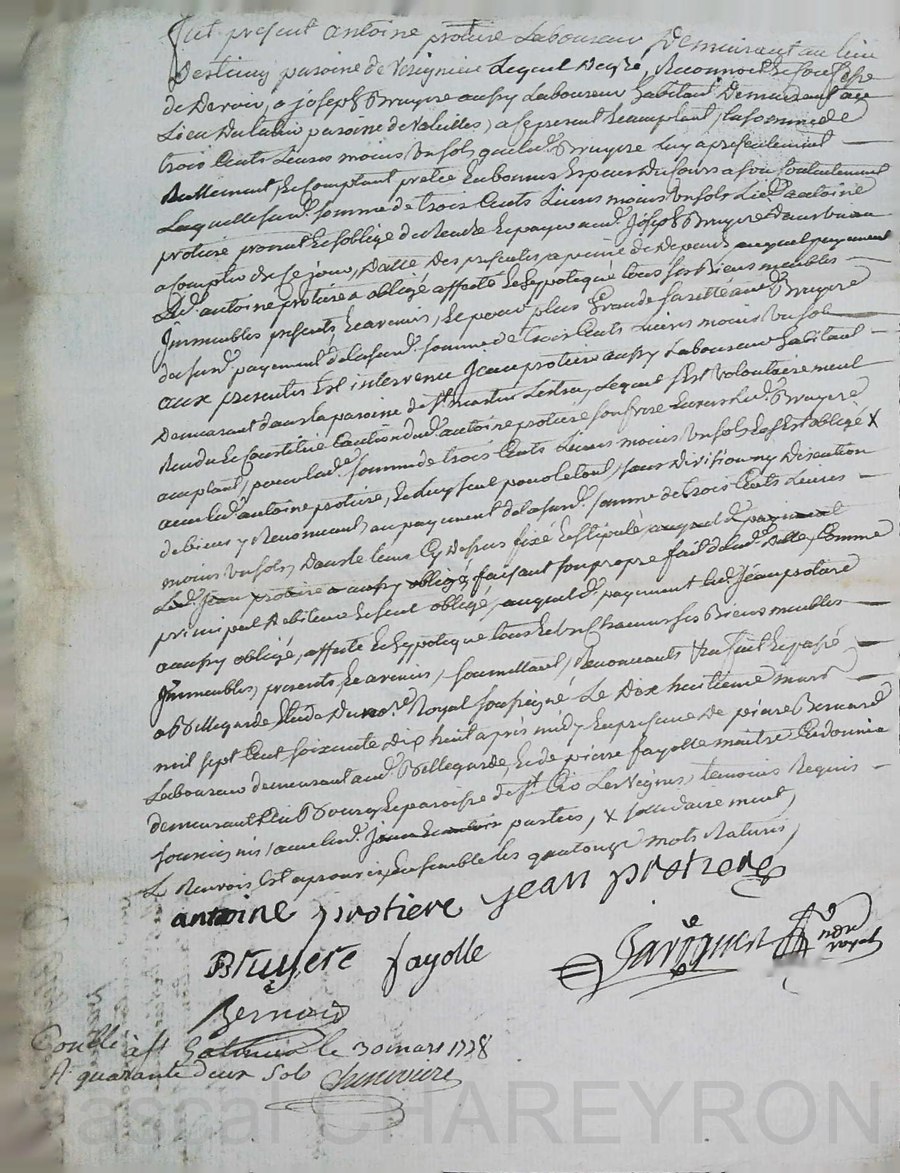 fut present antoine protiere Laboureur Demeurant au lieu
paroisse de Lequel De gré, Reconnoit Et Confesse
de Devoir, a joseph Bruyere aussy Laboureur habitant Demeurant au
Lieu paroisse de a ce present Et acceptant, la somme de
trois Cents Livres moins un sols que led. Bruyere Luy a presentement
Reellement Et Comptant preté En bonnes Especes De Cours a son Contentement
Laquelle susd. somme de trois Cents Livres moins un sols Led. antoine
protiere promet Et s'oblige de Rendre Et payer aud. Joseph Bruyere Dans un an
a Compter de Ce jour, Datte Des presentes, a peine de Depens, auquel payement
Led. antoine protiere a obligé affecté Et hypotequé tous ses Biens meubles
Immeubles presents, Et avenir, Et pour plus Grande sureté aud. Bruyere
du susd. payement de la susd. somme de trois Cents Livres moins un sols
aux presentes Est intervenu Jean protiere aussy Laboureur habitant
Demeurant dans la paroisse de St martin Lestra, Lequel s'est volontairement
Rendu Et Constitué Caution dud. antoine protiere son frere Envers Led. Bruyere
acceptant, pour lad. somme de trois Cents Livres moins un sols Et s'est obligé X
avec led. antoine protiere, Et Luy seul pour le tout, sans Division ny Discution
de biens y Renoncant, au payement de la susd. somme de trois Cents Livres
moins un sols, Dans le terme Cy Dessus fixé Et stipulé, auquel d. payement
Led. Jean protiere a aussy obligé, faisant son propre fait de lad. Dette, Comme
principal debiteur Et seul obligé, auquel d. payement led. Jean protiere
a aussy obligé, affecté Et hypotequé tous Et Chacuns ses Biens meubles
Immeubles, presents, Et avenir, soumettant, Renoncants &c fait Et passé
a Bellegarde Etude Du nore. Royal soussigné Le Dix huitieme mars
mil sept Cent soixante Dix huit apres midy En presence De pierre Bernard
Laboureur demeurant aud. Bellegarde, Et de pierre fayolle maitre Cordonnier
demeurant Au Bourg Et paroisse de St Cir Les Vignes, temoins Requis
soussignés, avec lesd. parties, X solidairement,
Le Renvois Est aprouvé Ensemble les quatorze mots Raturés,
antoine protiere jean protiere
Bruyere fayolle
nore
royal
Bernard
Conllé à St Galmier le 30 mars 1778
A quarante deux Sols
Pascal CHAREYRON